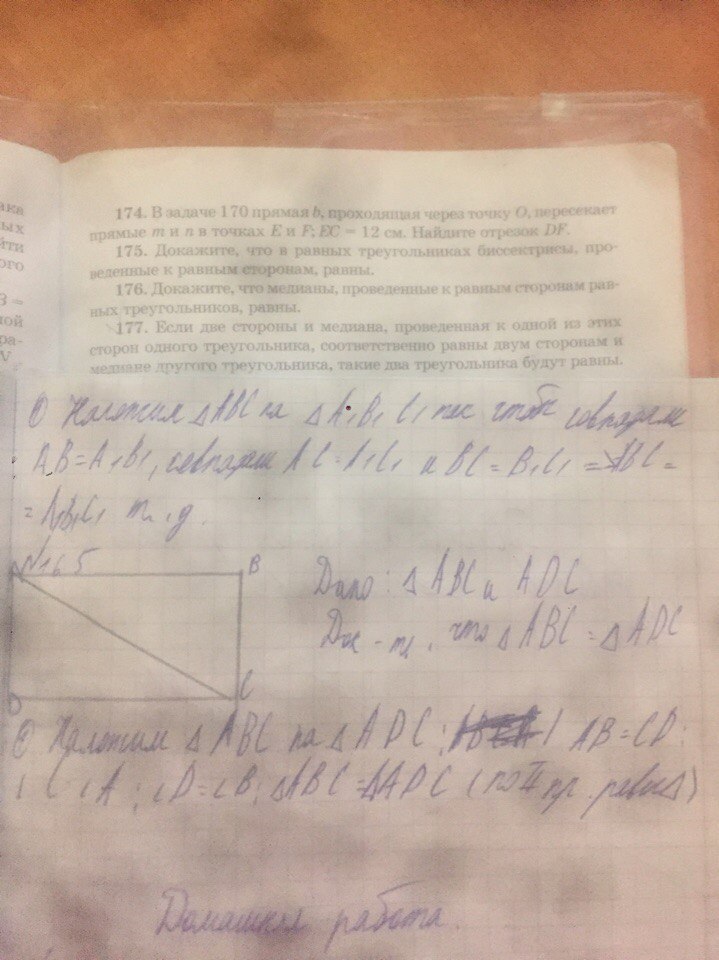 174. В задаче 170 прямая b, проходящая через точку O, пересекает
прямые m и n в точках E и F; EC = 12 см. Найдите отрезок DF.
175. Докажите, что в равных треугольниках биссектрисы, про-
веденные к равным сторонам, равны.
176. Докажите, что медианы, проведенные к равным сторонам рав-
ных треугольников, равны.
177. Если две стороны и медиана, проведенная к одной из этих
сторон одного треугольника, соответственно равны двум сторонам и
медиане другого треугольника, такие два треугольника будут равны.
ака
ных
йти
ого
B =
ной
ра-
V
Наложим △ABC на △A₁B₁C₁ так чтобы совпадали
AB=A₁B₁, совпадали AC=A₁C₁ и BC=B₁C₁ =
= A₁B₁C₁
№165
B
Дано: △ABC и ADC
Док-ть, что △ABC=△ADC
D
C
Наложим △ABC на △ADC; AB=CD;
∠D=∠B; △ABC=△ADC (по II пр. рав. △)
Домашняя работа.